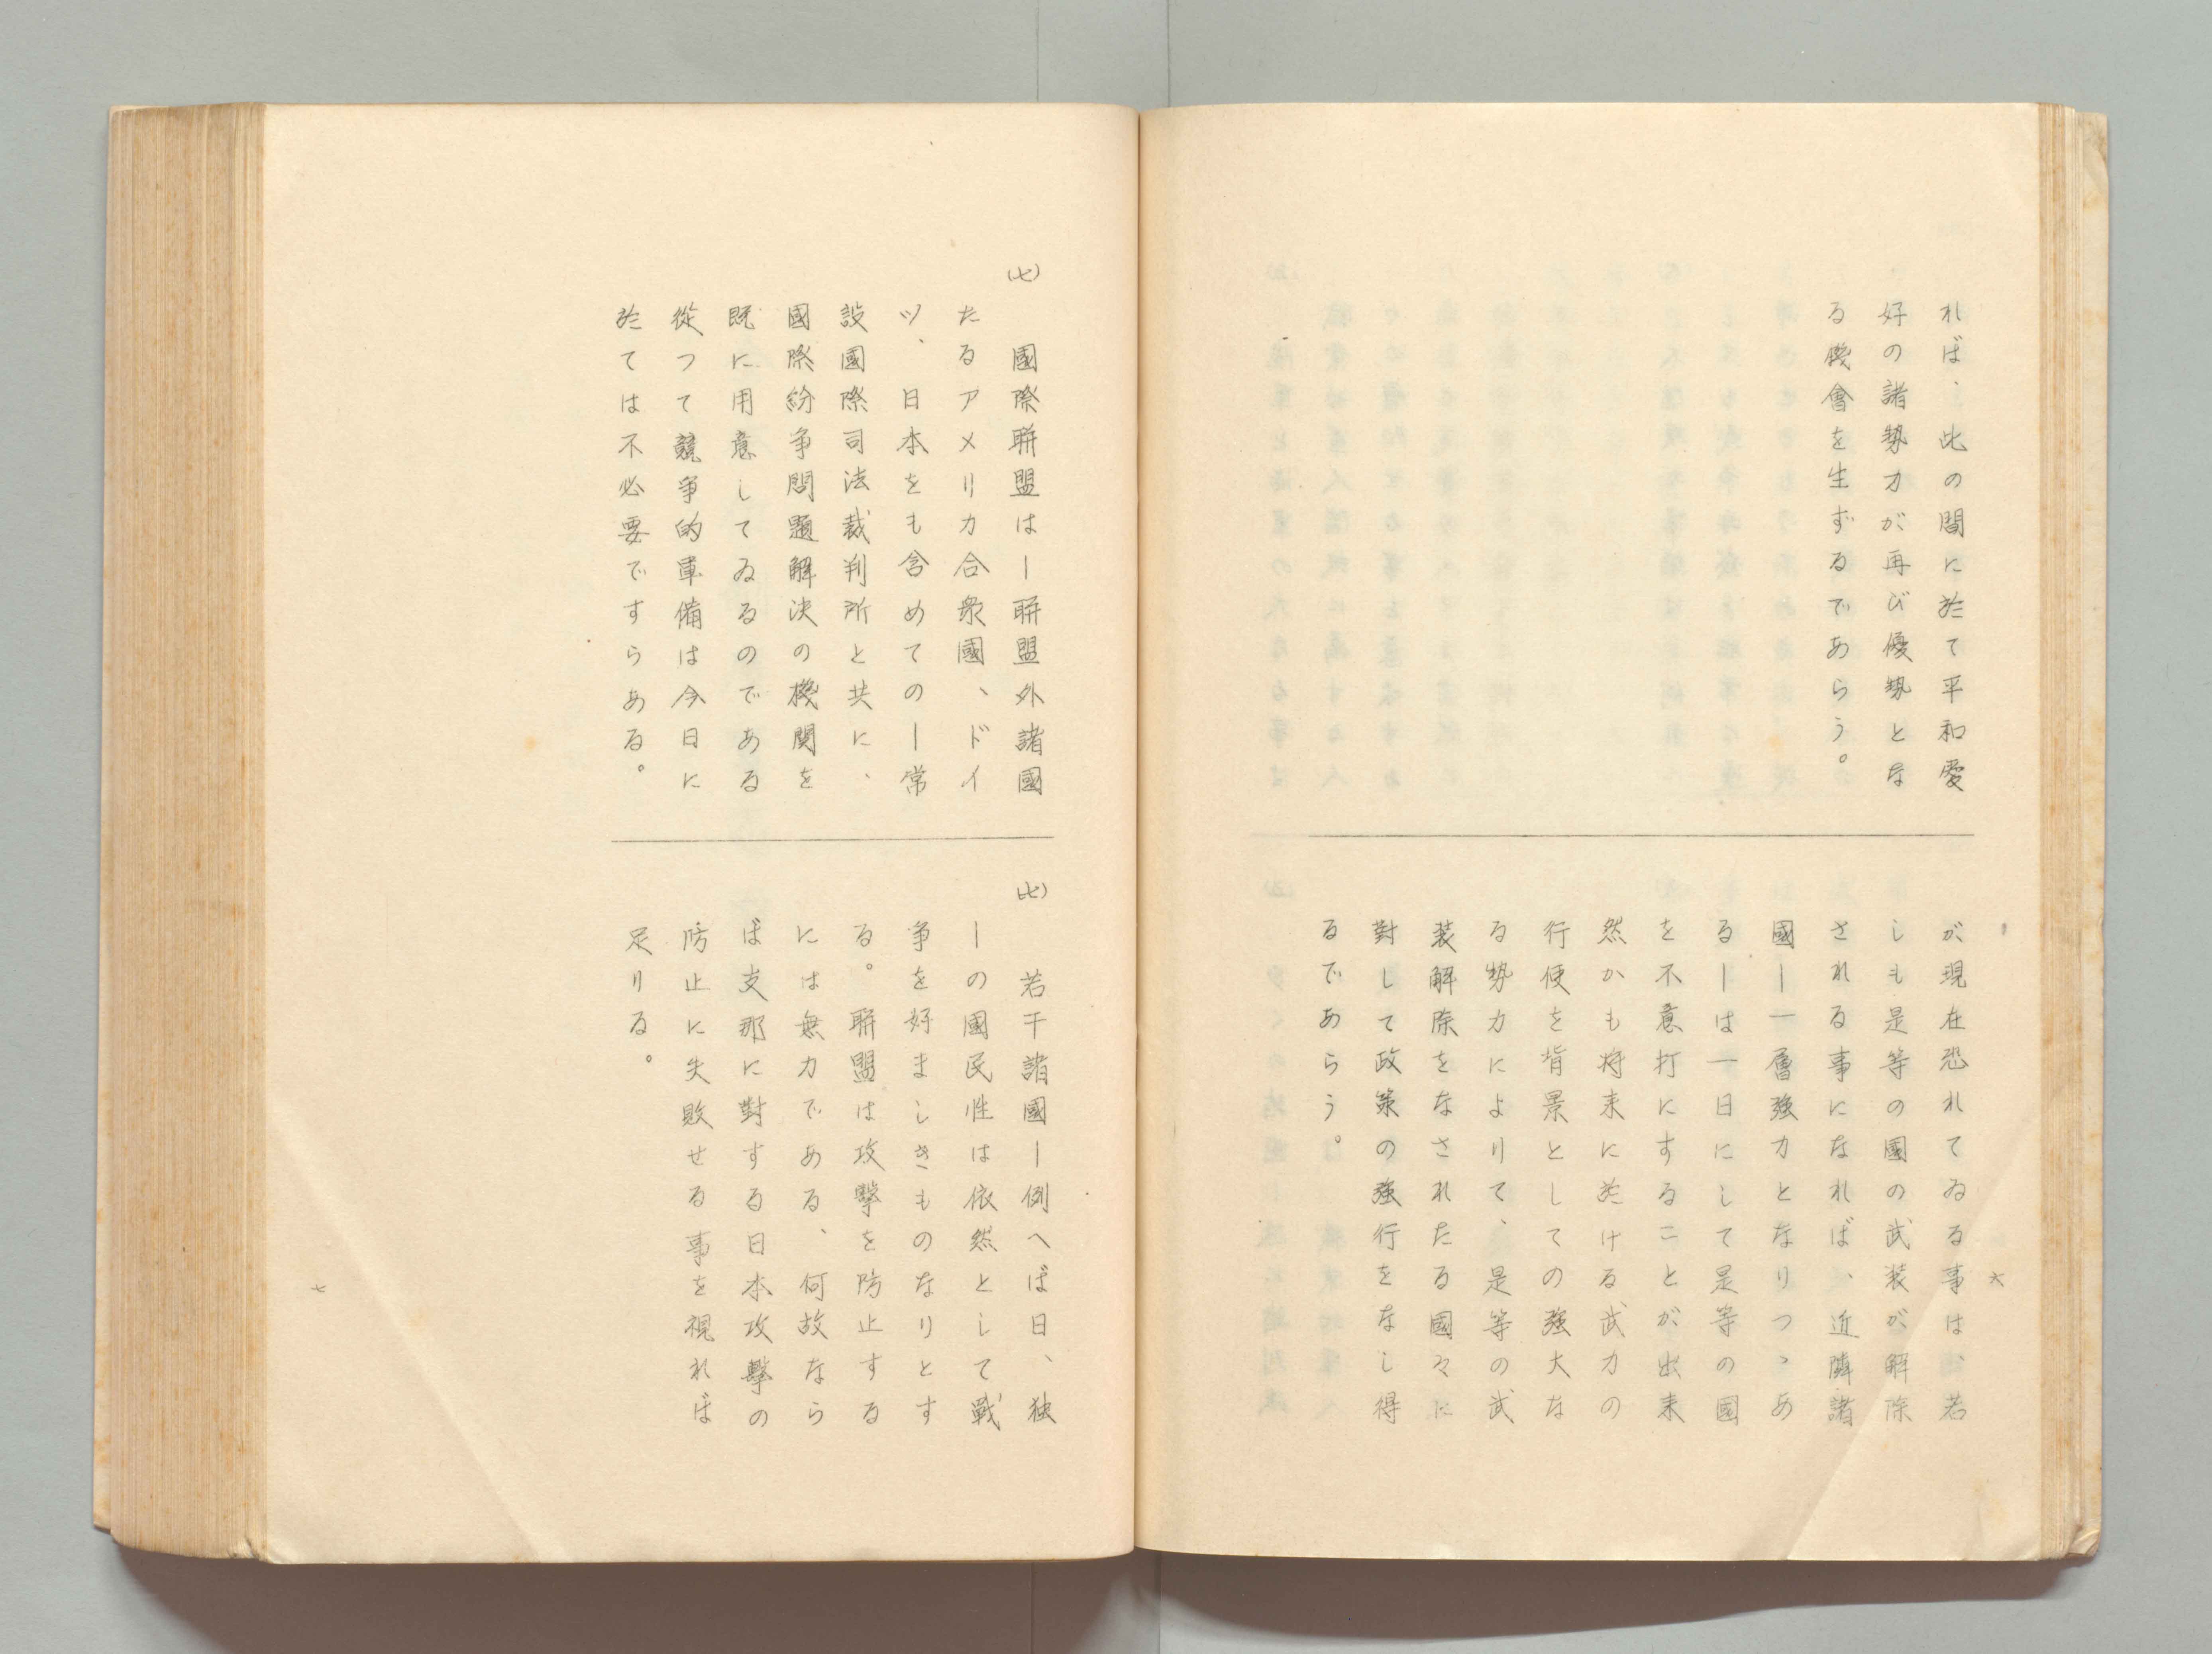 れば、此の間に於て平和愛
好の諸勢力が再び優勢とな
る機會を生ずるであらう。
が現在恐れてゐる事は、若
しも是等の國の武装が解除
される事になれば、近隣諸
國―一層強力となりつゝあ
る―は一日にして是等の國
を不意打にすることが出来
然かも将来に於ける武力の
行使を背景としての強大な
る勢力によりて、是等の武
装解除をなされたる國々に
對して政策の強行をなし得
るであらう。
六
(七)
國際聯盟は―聯盟外諸國
たるアメリカ合衆國、ドイ
ツ、日本をも含めての―常
設國際司法裁判所と共に、
國際紛争問題解決の機関を
既に用意してゐるのである
從つて競争的軍備は今日に
於ては不必要ですらある。
(七)
若干諸國―例へば日、独
―の國民性は依然として戦
争を好ましきものなりとす
る。聯盟は攻撃を防止する
には無力である、何故なら
ば支那に對する日本攻撃の
防止に失敗せる事を視れば
足りる。
七